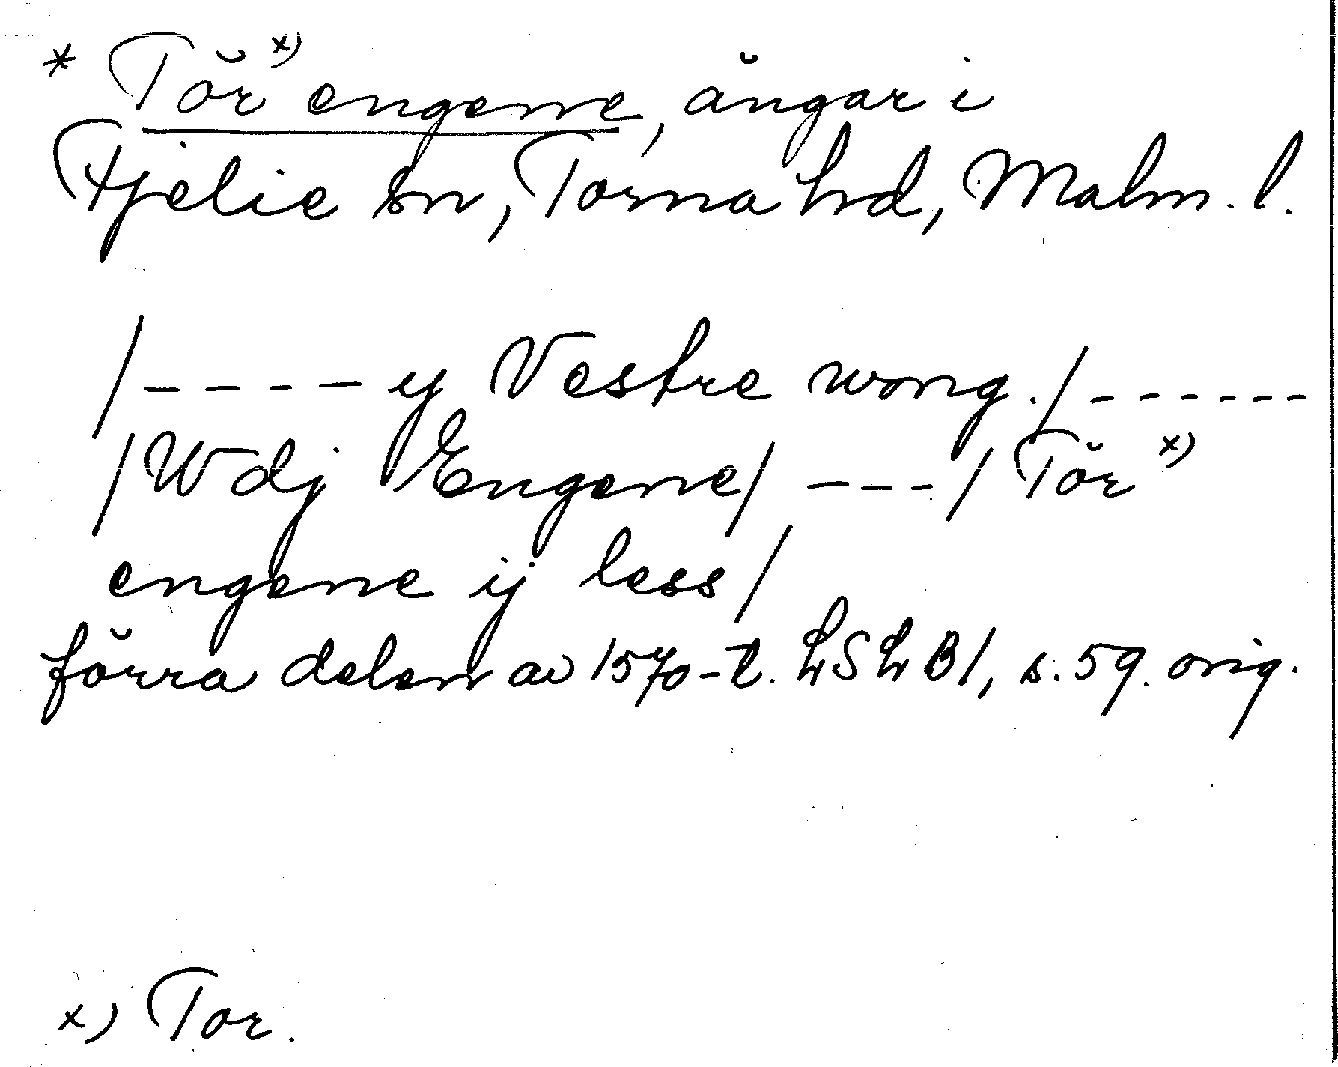 * Tör x) engene, ängar i
Fjelie sn, Torna hd, Malm. l.
/---- y Vestre wong./------
/Wdj Engene/ ---/ Tör x)
engene ij less/
förra delen av 1570-t. LSLB1, s. 59. orig.
x) Tor.